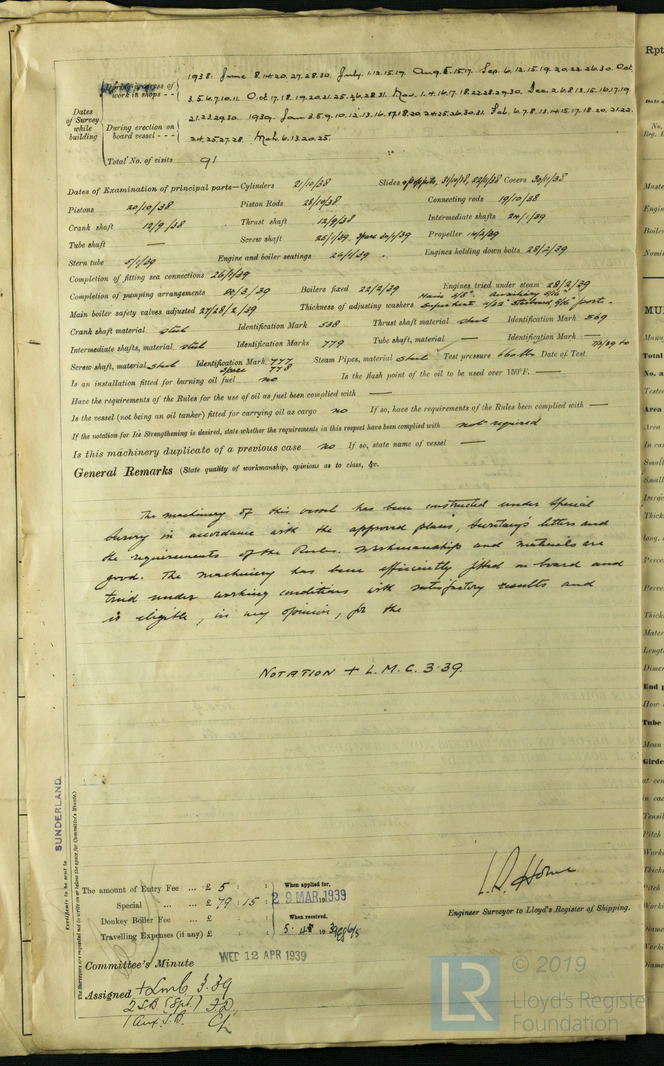 Dates of Survey while building
During progress of work in shops - -
1938. June 8.14.20.27.28.30. July 1.12.15.19. Aug. 8.15.17. Sep. 6.12.15.19.20.22.26.30. Oct.
3.5.6.7.10.11. Oct. 17.18.19.20.21.25.26.28.31. Nov. 1.4.16.17.18.22.23.28.29.30. Dec. 2.6.8.13.15.16.17.19
During erection on board vessel - - -
21.22.29.30. 1939. Jan 3.5.9.10.12.13.16.17.18.20.24.25.26.30.31. Feb. 6.7.8.13.14.15.17.18.20.21.22.
24.25.27.28. Mch. 6.13.20.25.
Total No. of visits 91
Dates of Examination of principal parts—Cylinders 21/10/38 Slides Covers 30/11/38
Pistons 20/10/38 Piston Rods 28/10/38 Connecting rods 19/10/38
Crank shaft 12/9/38 Thrust shaft 12/9/38 Intermediate shafts 24/1/39
Tube shaft — Screw shaft 25/1/39 Spare Propeller 14/2/39
Stern tube 5/1/39 Engine and boiler seatings 26/1/39 Engines holding down bolts 28/2/39
Completion of fitting sea connections 26/1/39
Completion of pumping arrangements 20/3/39 Boilers fixed 22/2/39 Engines tried under steam 28/2/39
Main boiler safety valves adjusted 27/28/2/39 Thickness of adjusting washers
Crank shaft material steel Identification Mark 538 Thrust shaft material steel Identification Mark 569
Intermediate shafts, material steel Identification Marks 779 Tube shaft, material — Identification Mark —
Screw shaft, material steel Identification Mark 777 Spare 778 Steam Pipes, material steel Test pressure Date of Test
Is an installation fitted for burning oil fuel no Is the flash point of the oil to be used over 150°F. —
Have the requirements of the Rules for the use of oil as fuel been complied with —
Is the vessel (not being an oil tanker) fitted for carrying oil as cargo no If so, have the requirements of the Rules been complied with —
If the notation for Ice Strengthening is desired, state whether the requirements in this respect have been complied with not required
Is this machinery duplicate of a previous case no If so, state name of vessel —
General Remarks (State quality of workmanship, opinions as to class, &c.
The machinery of this vessel has been constructed under special
survey in accordance with the approved plans, Secretary's letters and
the requirements of the Rules. Workmanship and materials are
good. The machinery has been efficiently fitted on board and
tried under working conditions with satisfactory results and
is eligible, in my opinion, for the
NOTATION + L.M.C. 3.39.
SUNDERLAND.
Certificate to be sent to
The Surveyors are requested not to write on or below the space for Committee's Minute.
The amount of Entry Fee ... £ 5 : :
Special ... ... £ 79 : 15 :
Donkey Boiler Fee ... £ : :
Travelling Expenses (if any) £ : :
When applied for,
29 MAR 1939
When received,
Engineer Surveyor to Lloyd's Register of Shipping.
Committee's Minute WED 12 APR 1939
Assigned + Lmc 3.39
2 SB (Spt.) F.D.
1 Aux S.B. CL
LR © 2019
Lloyd's Register
Foundation